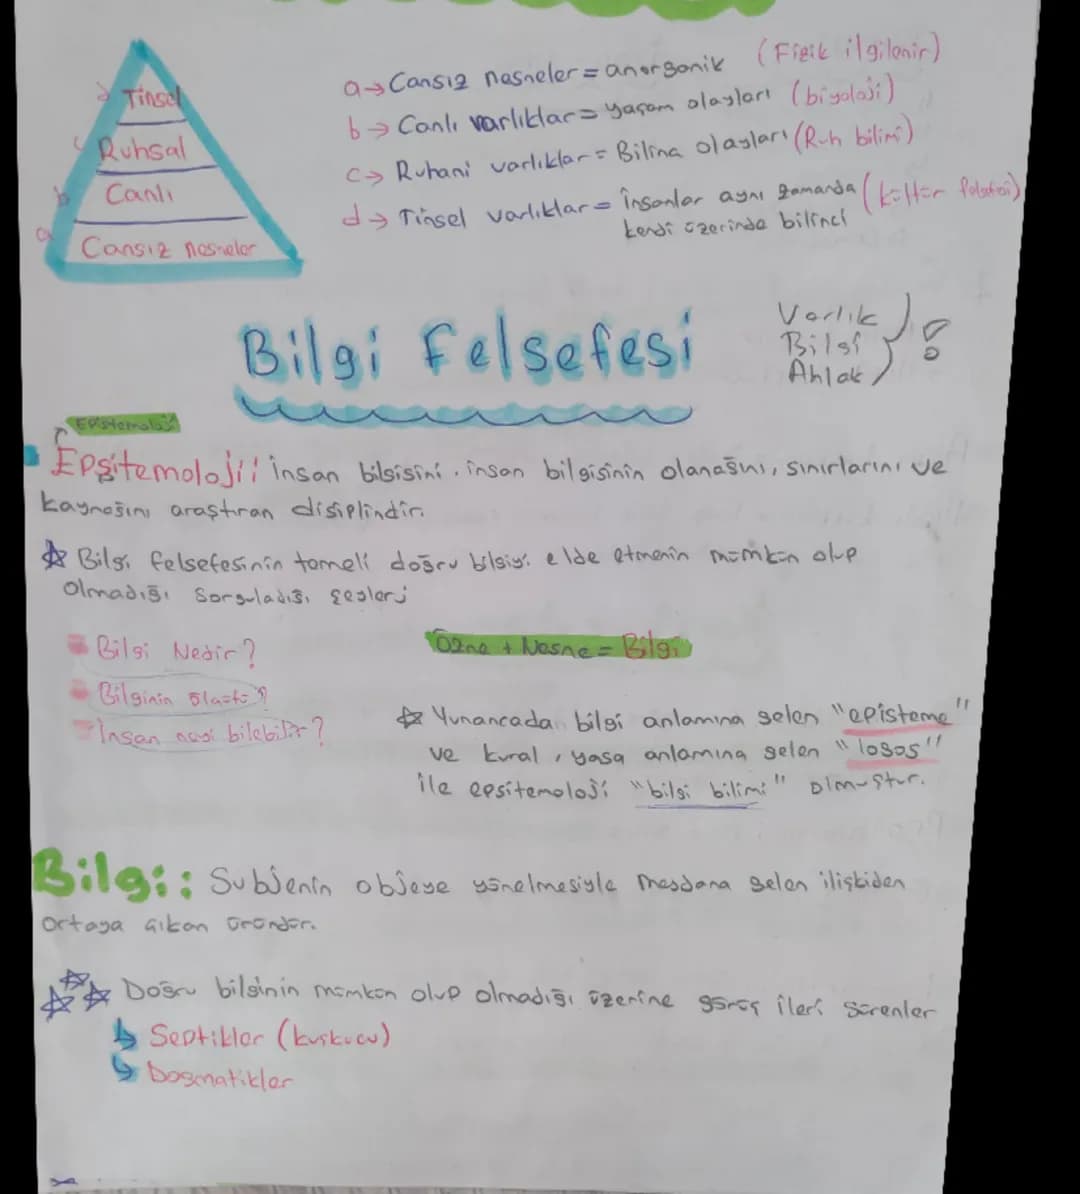 d Tinsel
c Ruhsal
b Canlı
a Cansız nesneler
a→ Cansız nesneler = anorganik (Fizik ilgilenir)
b→ Canlı varlıklar = yaşam olayları (biyoloji)
c→ Ruhani varlıklar = Bilinç olayları (Ruh bilimi)
d→ Tinsel varlıklar = İnsanlar aynı zamanda (kültür felsefesi)
kendi üzerinde bilinci
Bilgi Felsefesi
Varlık
Bilgi
Ahlak
Epistemoloji
Epsitemoloji! insan bilgisini. insan bilgisinin olanağını, sınırlarını ve
kaynağını araştıran disiplindir.
☆ Bilgi felsefesinin temeli doğru bilgiyi elde etmenin mümkün olup
Olmadığı Sorguladığı şeyler;
Bilgi Nedir?
Bilginin ölçütü?
İnsan neyi bilebilir?
Özne + Nesne = Bilgi
☆ Yunancadan bilgi anlamına gelen "episteme"
ve kural, yasa anlamına gelen "logos"
ile epsitemoloji "bilgi bilimi" olmuştur.
Bilgi: Subjenin objeye yönelmesiyle meydana gelen ilişkiden
ortaya çıkan üründür.
☆☆☆ Doğru bilginin mümkün olup olmadığı üzerine görüş ileri sürenler
↳ Septikler (kuşkucu)
↳ Dogmatikler